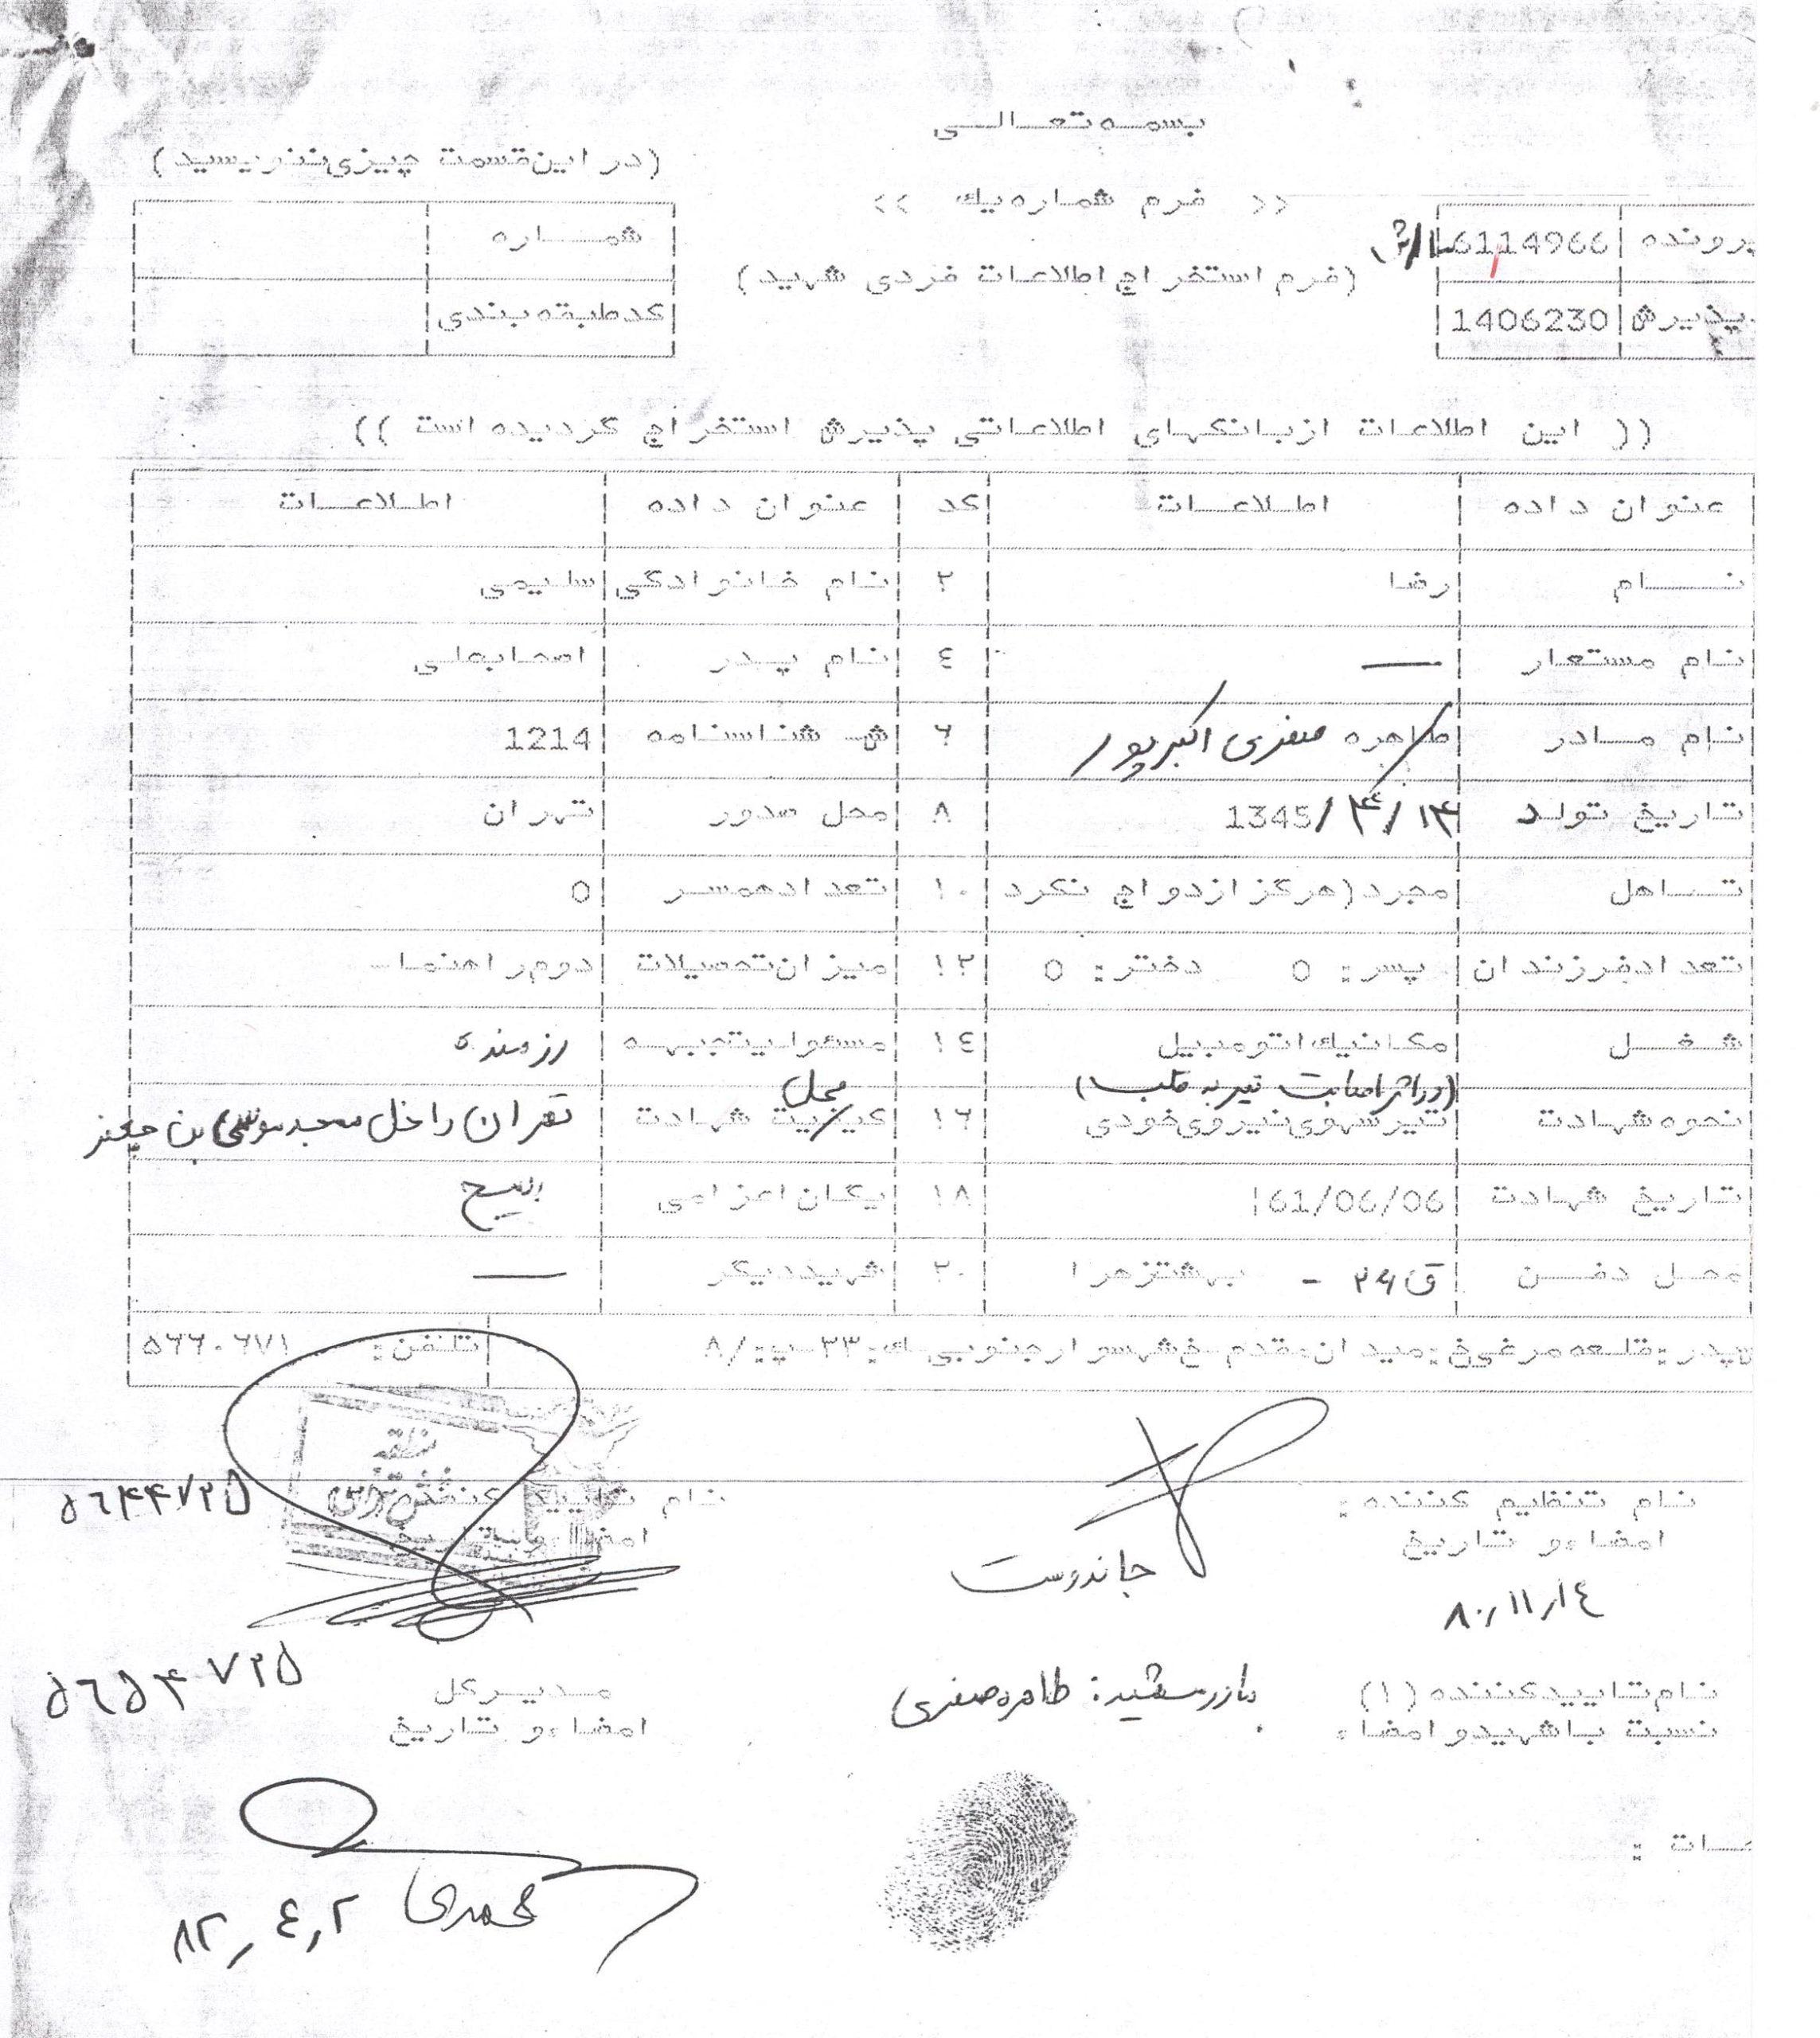 بسمه تعالی
(در این قسمت چیزی ننویسید)
<< فرم شماره یك >>
(فرم استخراج اطلاعات فردی شهید)
پرونده 6114966
پذیرش 1406230
شماره
کد طبقه بندی
(( این اطلاعات از بانکهای اطلاعاتی پذیرش استخراج گردیده است ))
عنوان داده اطلاعات کد عنوان داده اطلاعات
نام رضا ۲ نام خانوادگی سلیمی
نام مستعار — ٤ نام پدر اصحابعلی
نام مادر طاهره صفری اکبرپور ۶ ش شناسنامه 1214
تاریخ تولد 1345/۴/۱۴ ۸ محل صدور تهران
تاهل مجرد(هرگز ازدواج نکرد ۱۰ تعداد همسر 0
تعداد فرزندان پسر: 0 دختر: 0 ۱۲ میزان تحصیلات دوم راهنما-
شغل مکانیك اتومبیل ۱٤ مسئولیت جبهه رزمنده
نحوه شهادت تیر سهوی نیروی خودی (در اثر اصابت تیر به قلب) ۱۶ کیفیت شهادت محل تهران داخل مسجد موسی بن جعفر
تاریخ شهادت 61/06/06 ۱۸ یگان اعزامی بسیج
محل دفن ق ۲۴ - بهشت زهرا ۲۰ شهید دیگر —
پدر: قلعه مرغی خ: میدان مقدم-خ شهسوار جنوبی-ك: ۲۳-پ: ۸/ تلفن: ۵۶۶۰۶۷۱
نام تنظیم کننده:
امضاء و تاریخ
۸۰,۱۱,۱٤
جاندوست
نام تایید کننده (۲)
امضاء و تاریخ
منطقه
۵۶۴۴۷۲۵
۵۶۵۴۷۲۵
نام تایید کننده (۱)
نسبت با شهید و امضاء
مادر شهید: طاهره صفری
مدیر کل
امضاء و تاریخ
محمدی
۸۲,٤,۲